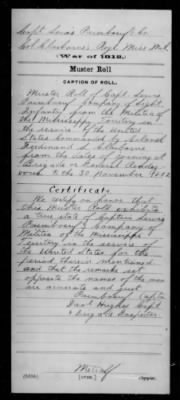 Capt. Lewis Paimboeuf's Co.
Col. Claiborne's Regt. Miss. Mil.
(War of 1812.)
Muster Roll
CAPTION OF ROLL.
Muster Roll of Capt Lewis
Paimboeuf Company of Light
Infantry from the Militia of
the Mississippi Territory in
the service of the United
States commanded by Colonel
Ferdinand L. Claiborne
from the date of joining at
to the 30 November 1812
Certificate.
We certify on honor that
this Muster Roll exhibits
a true state of Captain Lewis
Paimboeuf's Company of
Militia of the Mississippi
Territory in the service of
the United States for the
period therein mentioned
and that the remarks set
opposite the names of the men
are accurate and just
Paimboeuf Capt.
Danl Hughes Capt
& Brigade Inspector
Metcalf
Copyist.